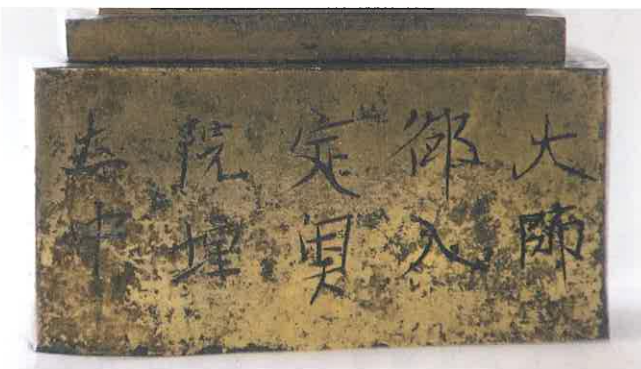 大師
御入
定奥
院埋
土中